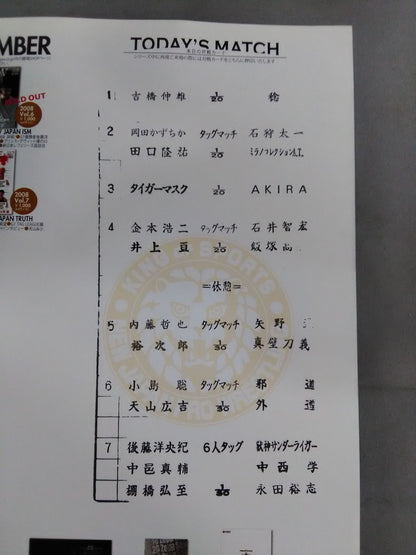 MBER
TODAY'S MATCH
本日の対戦カード
シリーズ中に再度ご来場の際には対戦カードをこちらに押印いたします
SOLD OUT
2008
Vol.6
¥1,000
JAPAN ISM
2008
Vol.7
¥1,000
JAPAN TRUTH
1 吉橋伸雄 1/20 稔
2 岡田かずちか タッグマッチ 石狩太一
田口隆祐 1/20 ミラノコレクションA.T.
3 タイガーマスク 1/20 AKIRA
4 金本浩二 タッグマッチ 石井智宏
井上亘 1/20 飯塚高
=休憩=
5 内藤哲也 タッグマッチ 矢野
裕次郎 1/30 真壁刀義
6 小島聡 タッグマッチ 邪道
天山広吉 1/30 外道
7 後藤洋央紀 6人タッグ 獣神サンダーライガー
中邑真輔 中西学
棚橋弘至 1/30 永田裕志
KING OF SPORTS